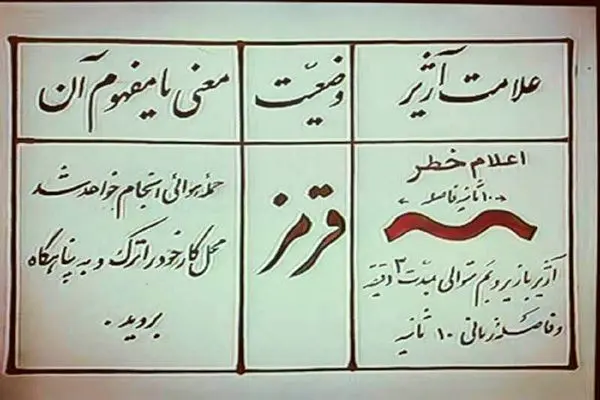 علامت آژیر
وضعیّت
معنی یا مفهوم آن
اعلام خطر
۱۰ ثانیه فاصله
آژیر با زیر و بم متوالی بمدّت ۳ دقیقه
و فاصله زمانی ۱۰ ثانیه
قرمز
حمله هوائی انجام خواهد شد
محل کار خود را ترک و به پناهگاه
بروید.